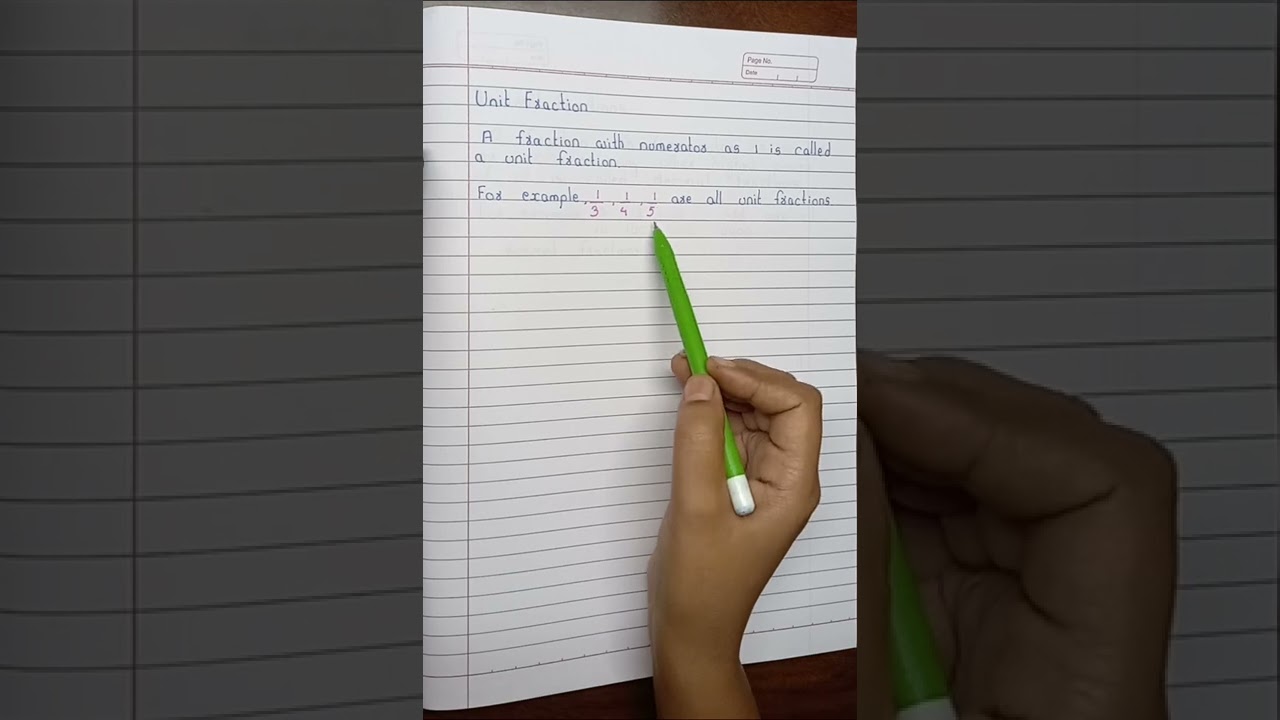 Page No.
Date
Unit Fraction
A fraction with numerator as 1 is called
a unit fraction.
For example, 1/3, 1/4, 1/5 are all unit fractions